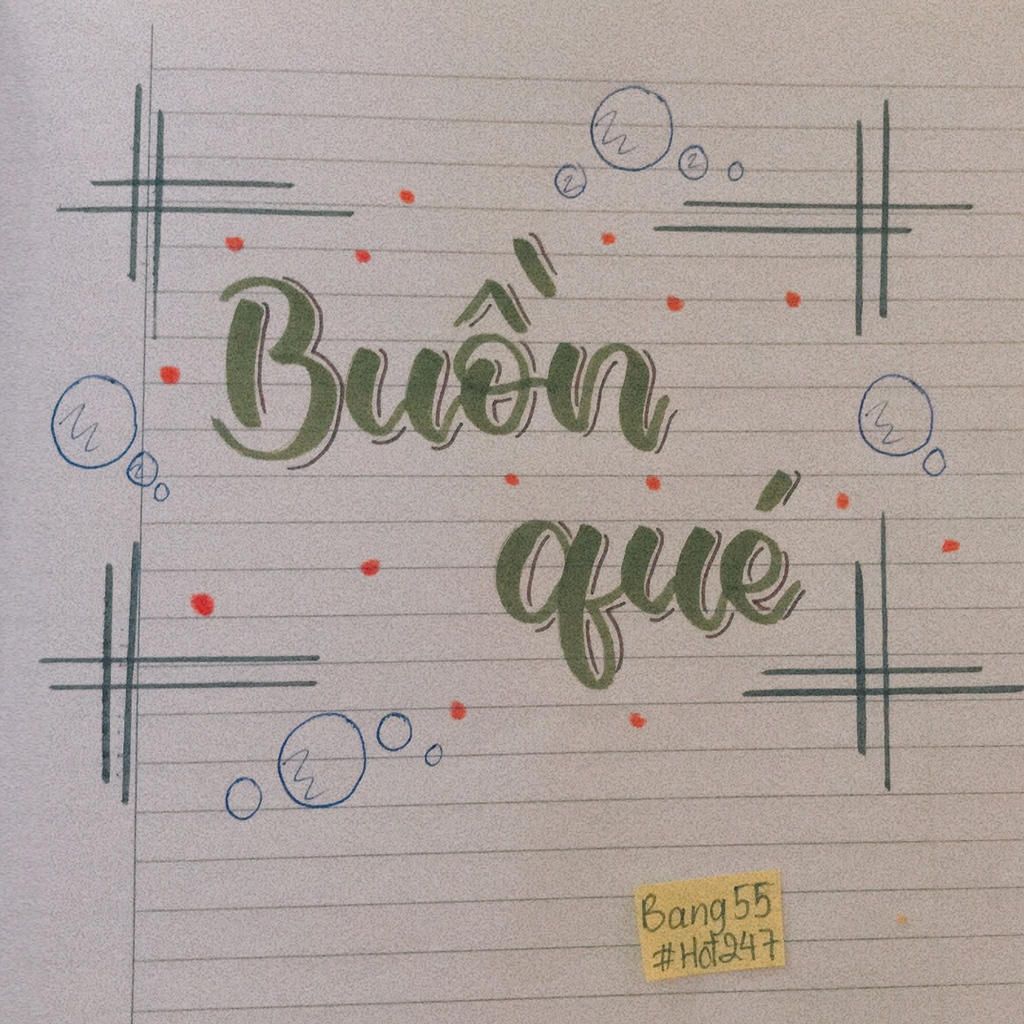 Buồn
qué
Bang55
#Hot247